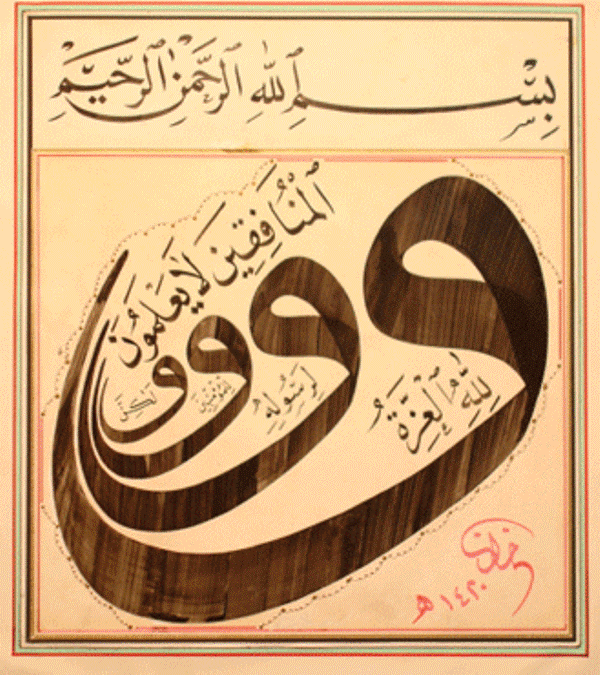 بِسْمِ اللّٰهِ الرَّحْمٰنِ الرَّحِيمِ
و لِلّٰهِ الْعِزَّةُ
و لِرَسُولِهِ
و لِلْمُؤْمِنِينَ
و لَكِنَّ
الْمُنَافِقِينَ لَا يَعْلَمُونَ
١٤٢٠ هـ